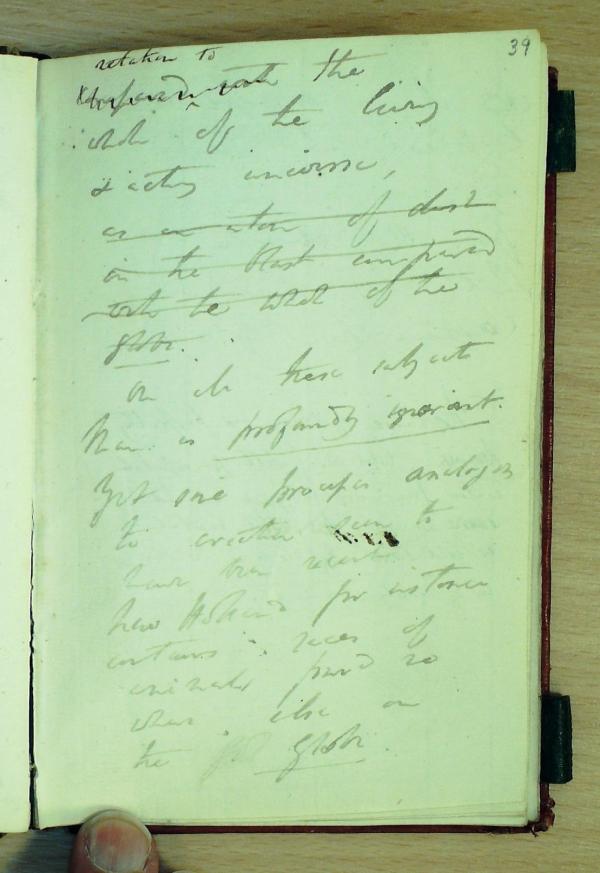 39
relation to
the
whole of the living
& acting universe,
as an atom of dust
in the blast compared
with the whole of the
globe.
On all these subjects
Man is profoundly ignorant.
Yet some processes analogous
to creation seem to
have been recent
New Holland for instance
contains races of
animals found no
where else on
the globe.